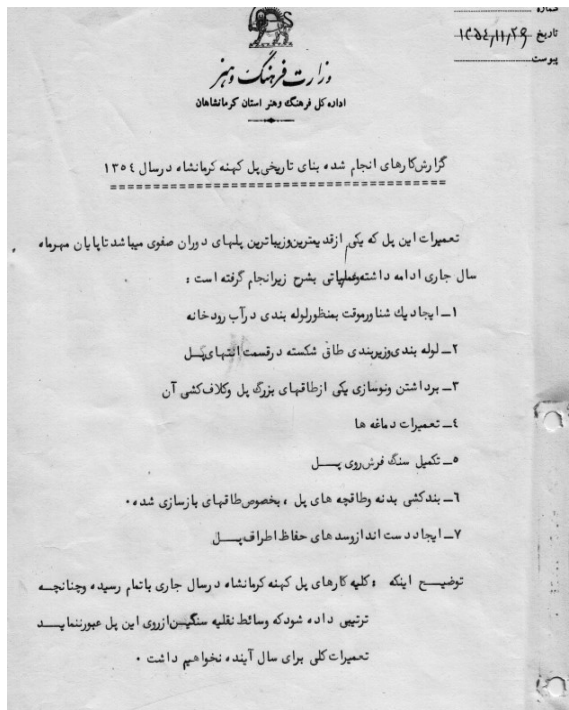 شماره
تاریخ ۱۳۵۴/۱۱/۲۹
پیوست
وزارت فرهنگ و هنر
اداره کل فرهنگ وهنر استان کرمانشاهان
گزارش کارهای انجام شده بنای تاریخی پل کهنه کرمانشاه درسال ۱۳۵۴
تعمیرات این پل که یکی ازقدیمترین وزیباترین پلهای دوران صفوی میباشد تا پایان مهرماه
سال جاری ادامه داشته وعملیاتی بشرح زیرانجام گرفته است :
۱ــ ایجاد یك شناورموقت بمنظورلوله بندی درآب رودخانه
۲ــ لوله بندی وزیربندی طاق شکسته درقسمت انتهای پل
۳ــ برداشتن ونوسازی یکی ازطاقهای بزرگ پل وکلاف کشی آن
٤ــ تعمیرات دماغه ها
۵ــ تکمیل سنگ فرش روی پــــل
٦ــ بندکشی بدنه وطاقچه های پل ، بخصوص طاقهای بازسازی شده .
۷ــ ایجاد دست اندازوسدهای حفاظ اطراف پــــل
توضیــح اینکه : کلیه کارهای پل کهنه کرمانشاه درسال جاری باتمام رسیده وچنانچــه
ترتیبی داده شودکه وسائط نقلیه سنگین ازروی این پل عبورننمایــد
تعمیرات کلی برای سال آینده نخواهیم داشت .